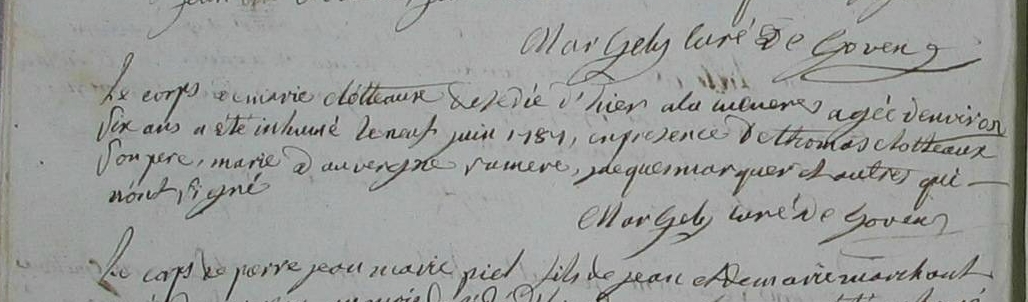 Mar Gely curé De Goven
Le corps de marie clotteaux décédée d'hier a la meneres agée d'environ
Six ans a été inhumé le neuf juin 1781, en presence De thomas clotteaux
Son pere, marie dauvergne sa mere, jacques marquer et autres qui
n'ont Signé
Mar Gely curé De Goven
Le corps de pierre jean marie piel fils de jean et de marie marchant